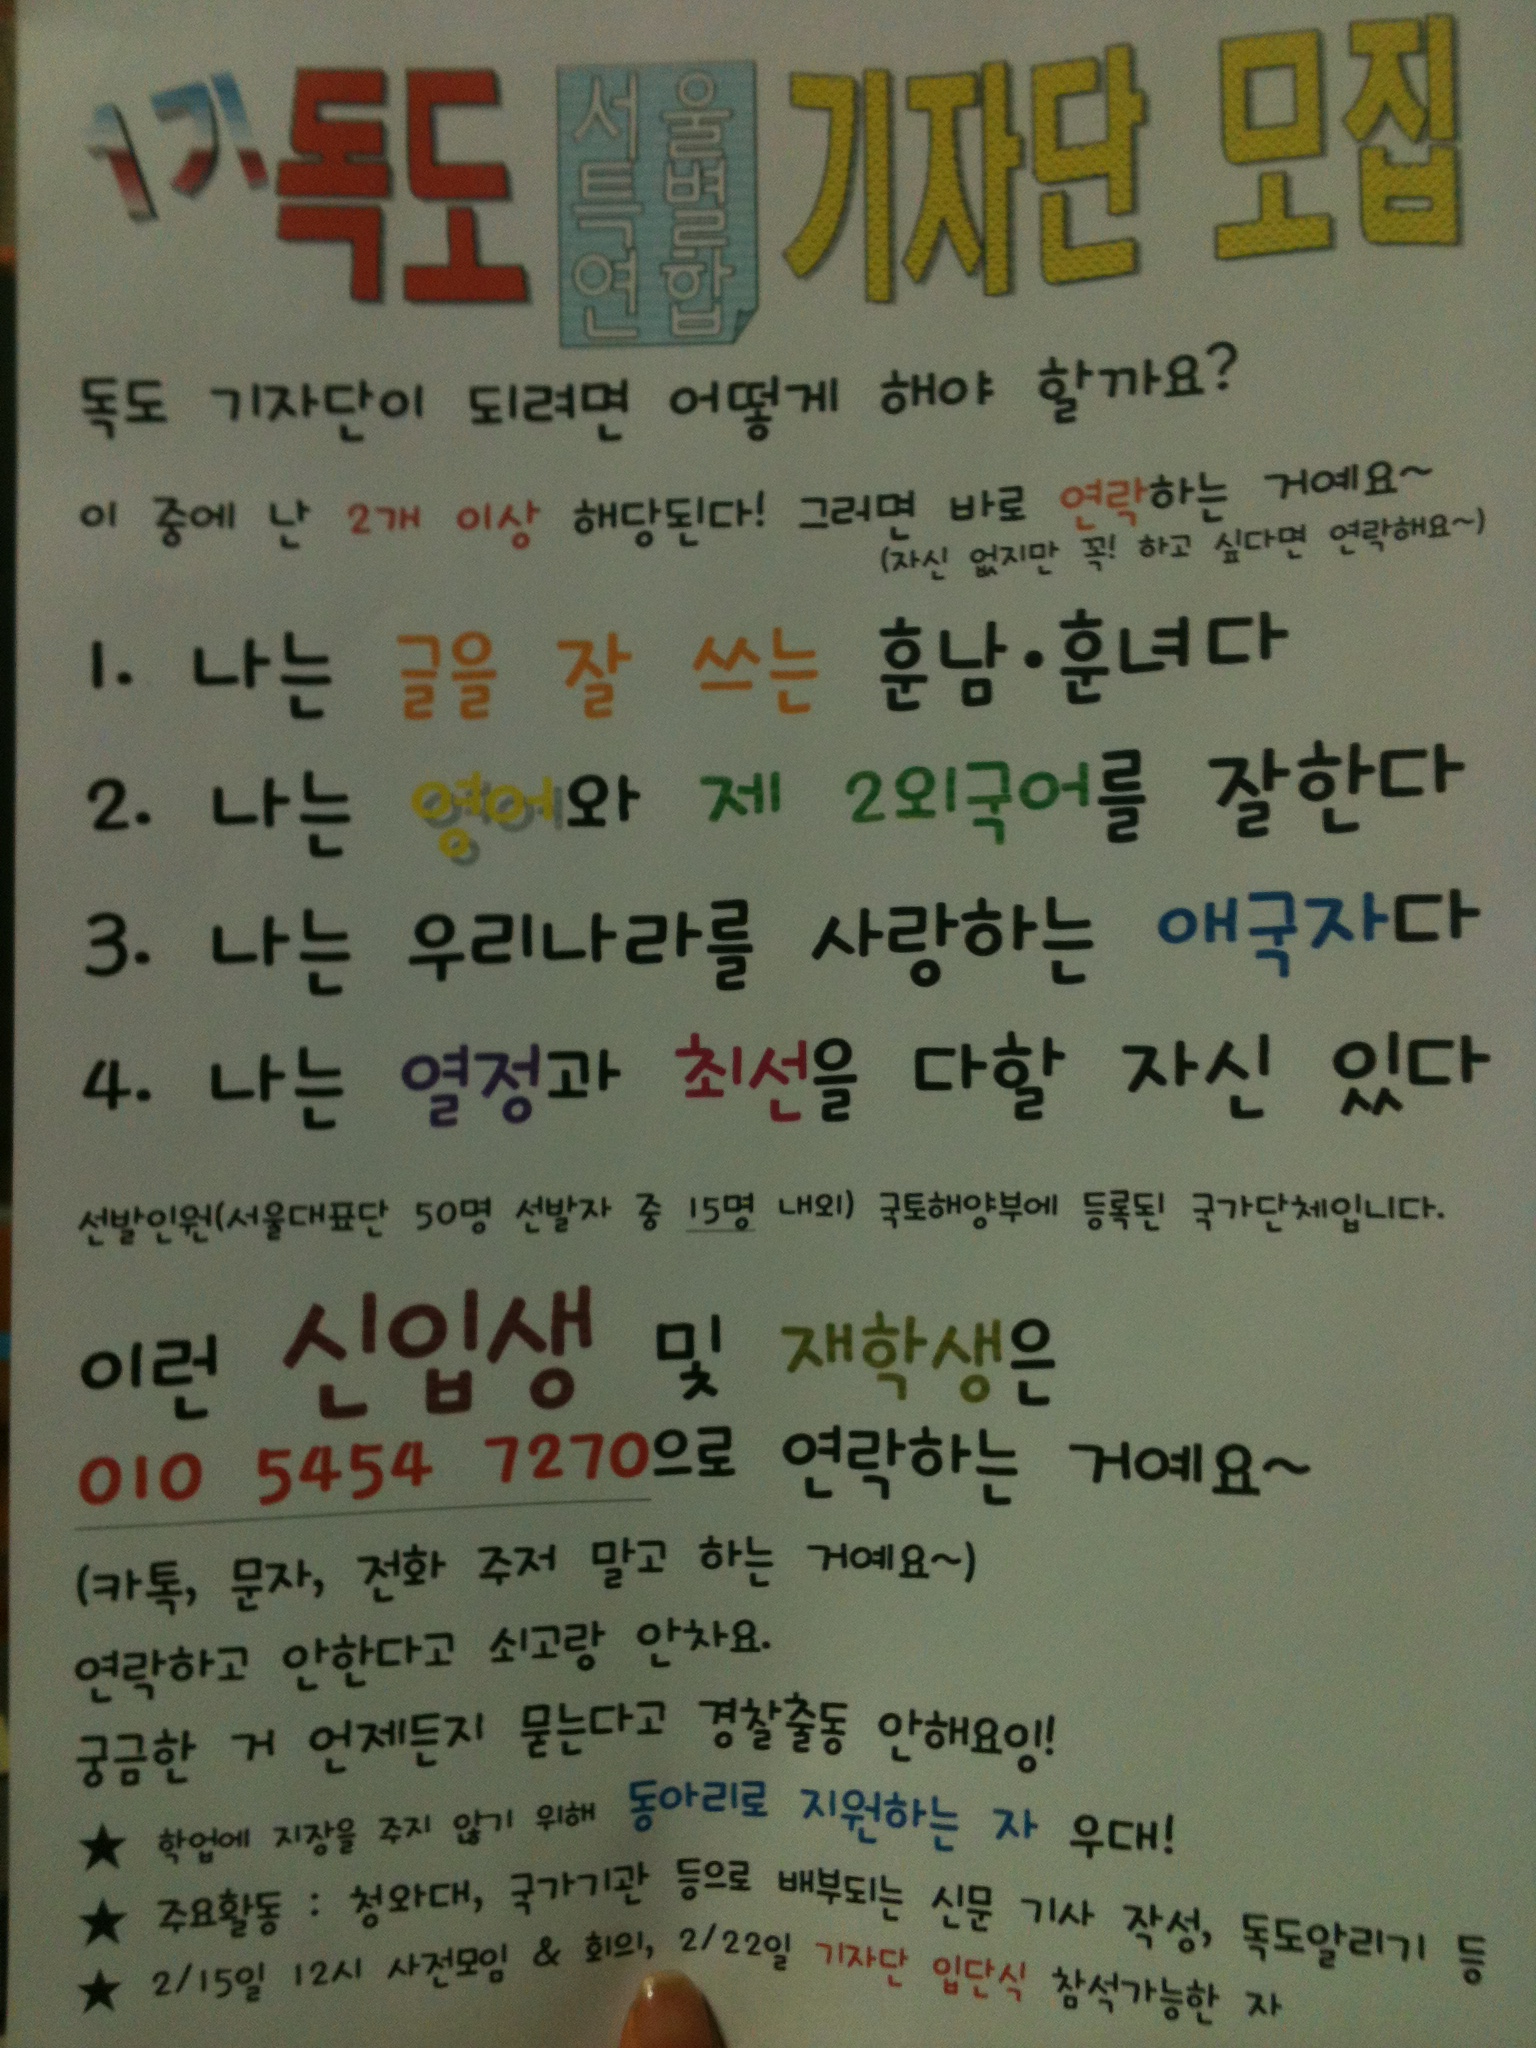 1기 독도 서울특별연합 기자단 모집
독도 기자단이 되려면 어떻게 해야 할까요?
이 중에 난 2개 이상 해당된다! 그러면 바로 연락하는 거예요~
(자신 없지만 꼭! 하고 싶다면 연락해요~)
1. 나는 글을 잘 쓰는 훈남·훈녀다
2. 나는 영어와 제 2외국어를 잘한다
3. 나는 우리나라를 사랑하는 애국자다
4. 나는 열정과 최선을 다할 자신 있다
선발인원(서울대표단 50명 선발자 중 15명 내외) 국토해양부에 등록된 국가단체입니다.
이런 신입생 및 재학생은
010 5454 7270으로 연락하는 거예요~
(카톡, 문자, 전화 주저 말고 하는 거예요~)
연락하고 안한다고 쇠고랑 안차요.
궁금한 거 언제든지 묻는다고 경찰출동 안해요잉!
★ 학업에 지장을 주지 않기 위해 동아리로 지원하는 자 우대!
★ 주요활동 : 청와대, 국가기관 등으로 배부되는 신문 기사 작성, 독도알리기 등
★ 2/15일 12시 사전모임 & 회의, 2/22일 기자단 입단식 참석가능한 자